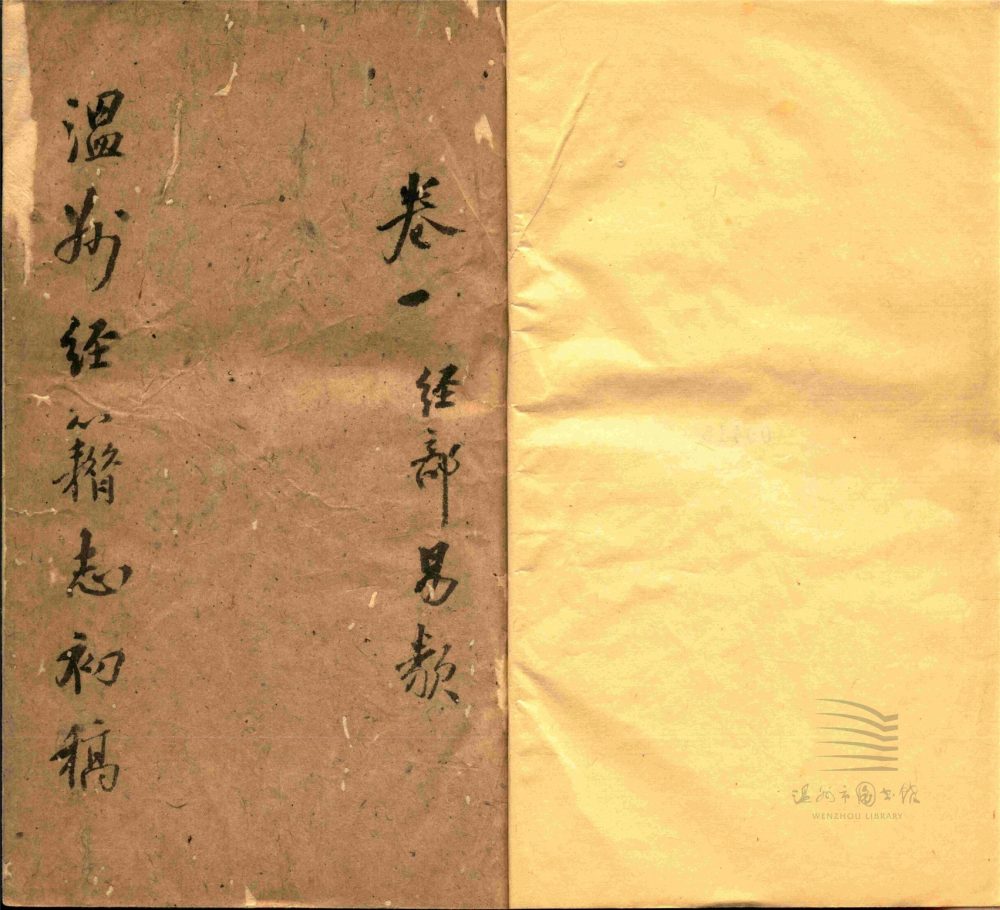 卷一 经部易類
温州经籍志初稿
温州市图书馆
WENZHOU LIBRARY